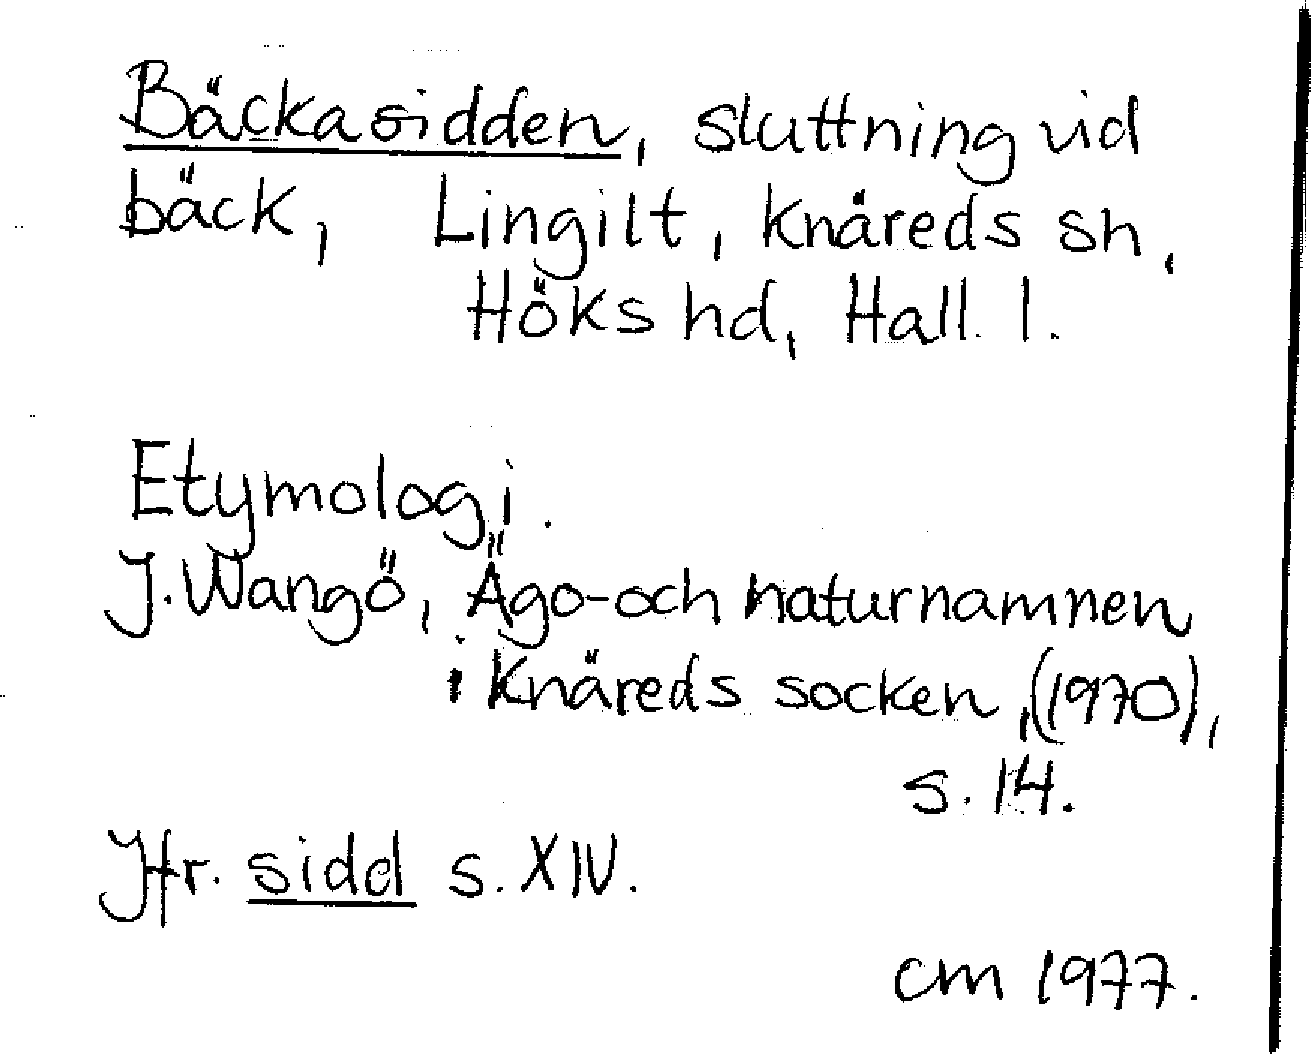 Bäckasidden, sluttning vid
bäck, Lingilt, Knäreds sn,
Höks hd, Hall. l.
Etymologi.
J. Wangö, Ägo- och naturnamnen
i Knäreds socken, (1970),
s. 14.
Jfr. sidd s. XIV.
cm 1977.